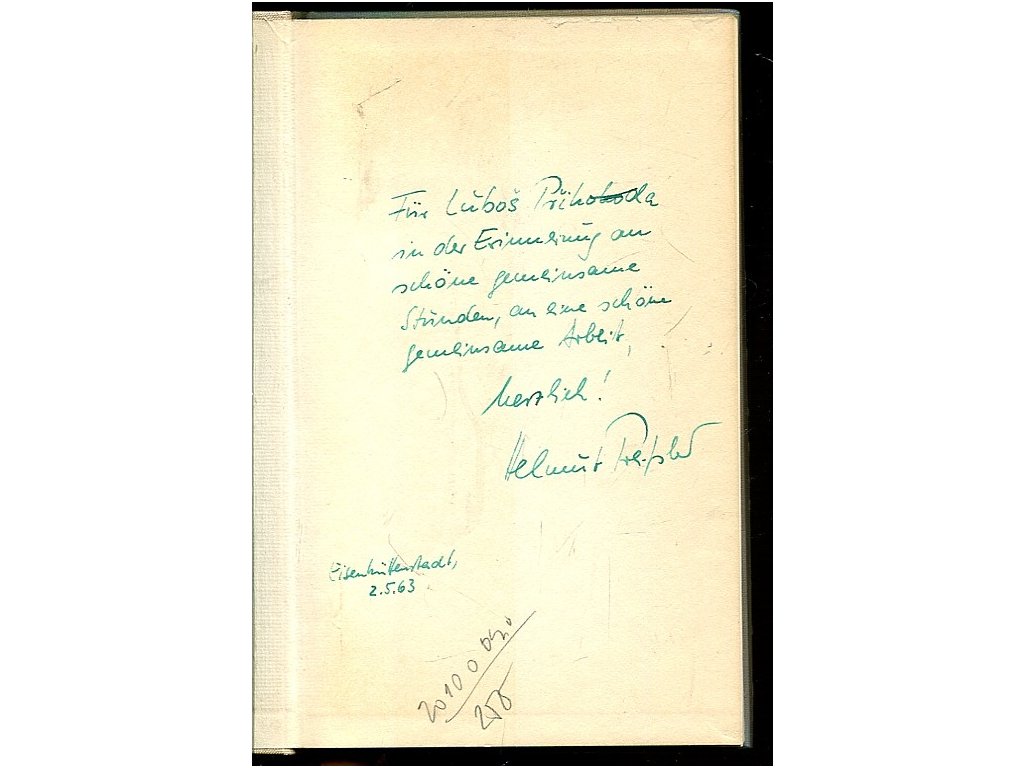 Für Luboš Příhoda
in der Erinnerung an
schöne gemeinsame
Stunden, an eine schöne
gemeinsame Arbeit,
herzlich!
Helmut Preißler
Eisenhüttenstadt,
2.5.63